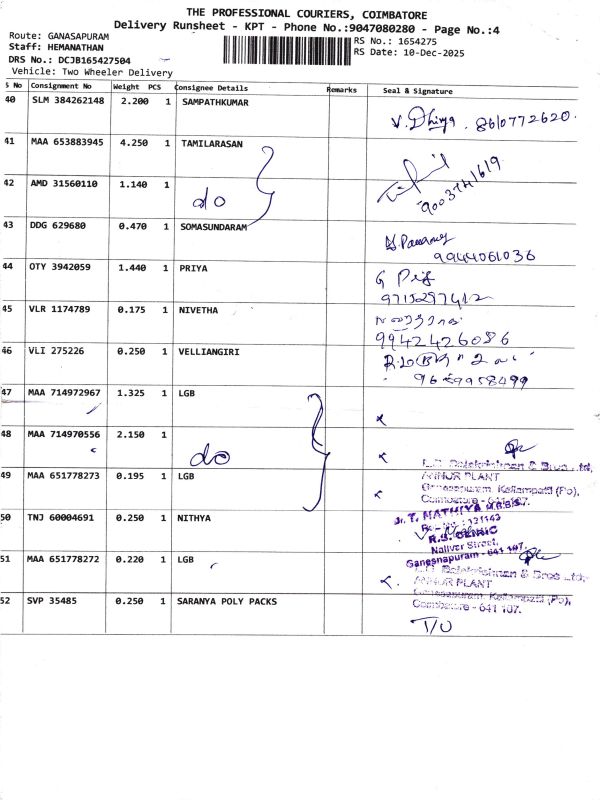 THE PROFESSIONAL COURIERS, COIMBATORE
Delivery Runsheet - KPT - Phone No.:9047080280 - Page No.:4
Route: GANASAPURAM
Staff: HEMANATHAN
DRS No.: DCJB165427504
Vehicle: Two Wheeler Delivery
RS No.: 1654275
RS Date: 10-Dec-2025
S No Consignment No Weight PCS Consignee Details Remarks Seal & Signature
40 SLM 384262148 2.200 1 SAMPATHKUMAR
V. Dhivya. 8610772620.
41 MAA 653883945 4.250 1 TAMILARASAN
42 AMD 31560110 1.140 1 do
9003741619
43 DDG 629680 0.470 1 SOMASUNDARAM
9944061036
44 OTY 3942059 1.440 1 PRIYA
G
45 VLR 1174789 0.175 1 NIVETHA
9942426086
46 VLI 275226 0.250 1 VELLIANGIRI
47 MAA 714972967 1.325 1 LGB
48 MAA 714970556 2.150 1 do
49 MAA 651778273 0.195 1 LGB
L.G. Balakrishnan & Bros Ltd,
ANNUR PLANT
Ganesapuram, Kallampatti (Po),
Coimbatore - 641 107.
50 TNJ 60004691 0.250 1 NITHYA
Dr. T. NATHIYA M.B.B.S
R.S. CLINIC
Naliver Street,
Ganesnapuram - 641 107.
51 MAA 651778272 0.220 1 LGB
L.G. Balakrishnan & Bros Ltd,
ANNUR PLANT
Ganesapuram, Kallampatti (Po),
Coimbatore - 641 107.
52 SVP 35485 0.250 1 SARANYA POLY PACKS
T/O